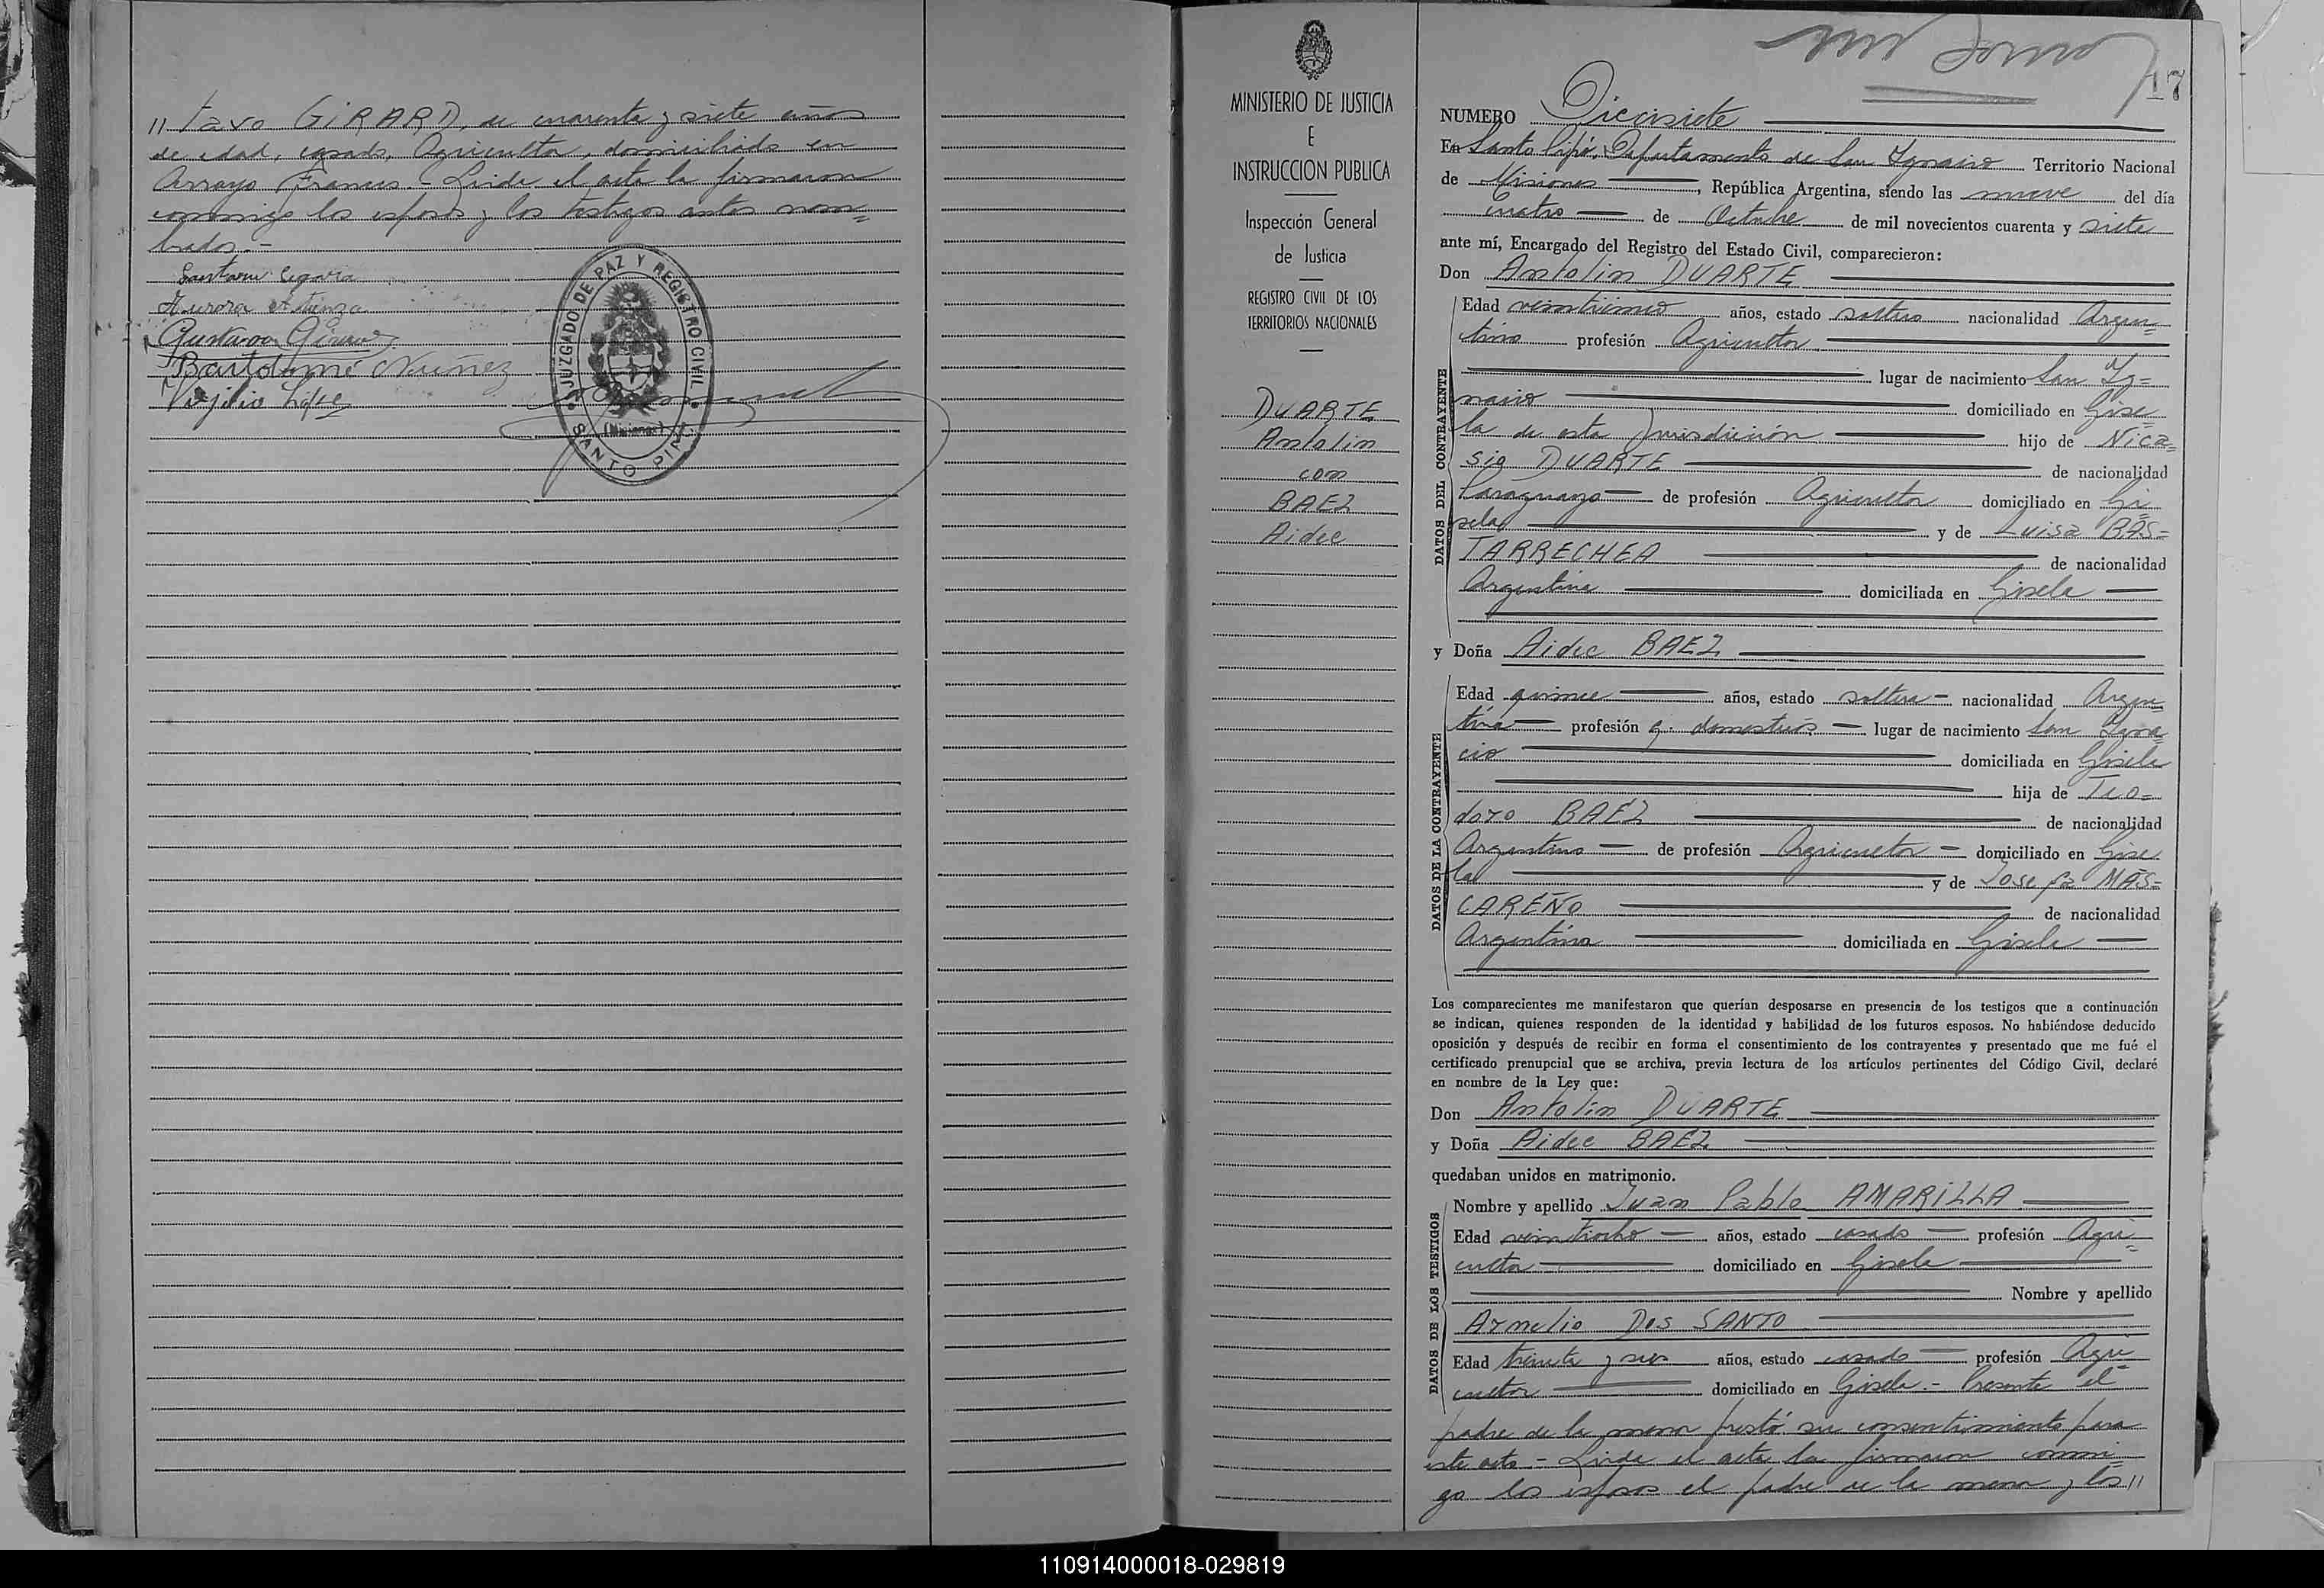 // tavo GiRARD, de cuarenta y siete años
de edad, casado, Agricultor, domiciliado en
Arroyo Frances.- Leida el acta la firmaron
conmigo los esposos y los testigos antes nom=
brados.-
Aurora Atienza
Gustavo Girard
Bartolomé Nuñez
Virjilio Lopez
JUZGADO DE PAZ Y REGISTRO CIVIL
(Misiones)
SANTO PIPÓ
MINISTERIO DE JUSTICIA
E
INSTRUCCION PUBLICA
Inspección General
de Justicia
REGISTRO CIVIL DE LOS
TERRITORIOS NACIONALES
DUARTE
Antolin
con
BAEZ
Aidee
17
NUMERO Diecisiete
En Santo Pipó, Departamento de San Ygnacio Territorio Nacional
de Misiones, República Argentina, siendo las nueve del día
cuatro de Octubre de mil novecientos cuarenta y siete
ante mí, Encargado del Registro del Estado Civil, comparecieron:
Don Antolin DUARTE
DATOS DEL CONTRAYENTE
Edad años, estado soltero nacionalidad Argen=
tino profesión Agricultor
lugar de nacimiento San Yg=
nacio domiciliado en Gise
la de esta Jurisdicción hijo de Nica=
sio DUARTE de nacionalidad
Paraguayo de profesión Agricultor domiciliado en Gi
sela y de Luisa BAS=
TARRECHEA de nacionalidad
Argentina domiciliada en Gisela
y Doña Aidee BAEZ
DATOS DE LA CONTRAYENTE
Edad quince años, estado soltera nacionalidad Argen=
tina profesión q. domesticos lugar de nacimiento San Ygna=
cio domiciliada en Gisela
hija de Teo=
doro BAEZ de nacionalidad
Argentino de profesión Agricultor domiciliado en Gise
la y de Josefa MAS=
CAREÑO de nacionalidad
Argentina domiciliada en Gisela
Los comparecientes me manifestaron que querían desposarse en presencia de los testigos que a continuación
se indican, quienes responden de la identidad y habilidad de los futuros esposos. No habiéndose deducido
oposición y después de recibir en forma el consentimiento de los contrayentes y presentado que me fué el
certificado prenupcial que se archiva, previa lectura de los artículos pertinentes del Código Civil, declaré
en nombre de la Ley que:
Don Antolin DUARTE
y Doña Aidee BAEZ
quedaban unidos en matrimonio.
DATOS DE LOS TESTIGOS
Nombre y apellido Juan Pablo AMARILLA
Edad veintiocho años, estado casado profesión Agri
cultor domiciliado en Gisela
Nombre y apellido
Arnelio Dos SANTO
Edad treinta y seis años, estado casado profesión Agri
cultor domiciliado en Gisela.- Presente el
padre de la menor prestó su consentimiento para
este acto - Leida el acta la firmaron conmi
go los esposos el padre de la menor y los //
110914000018-029819